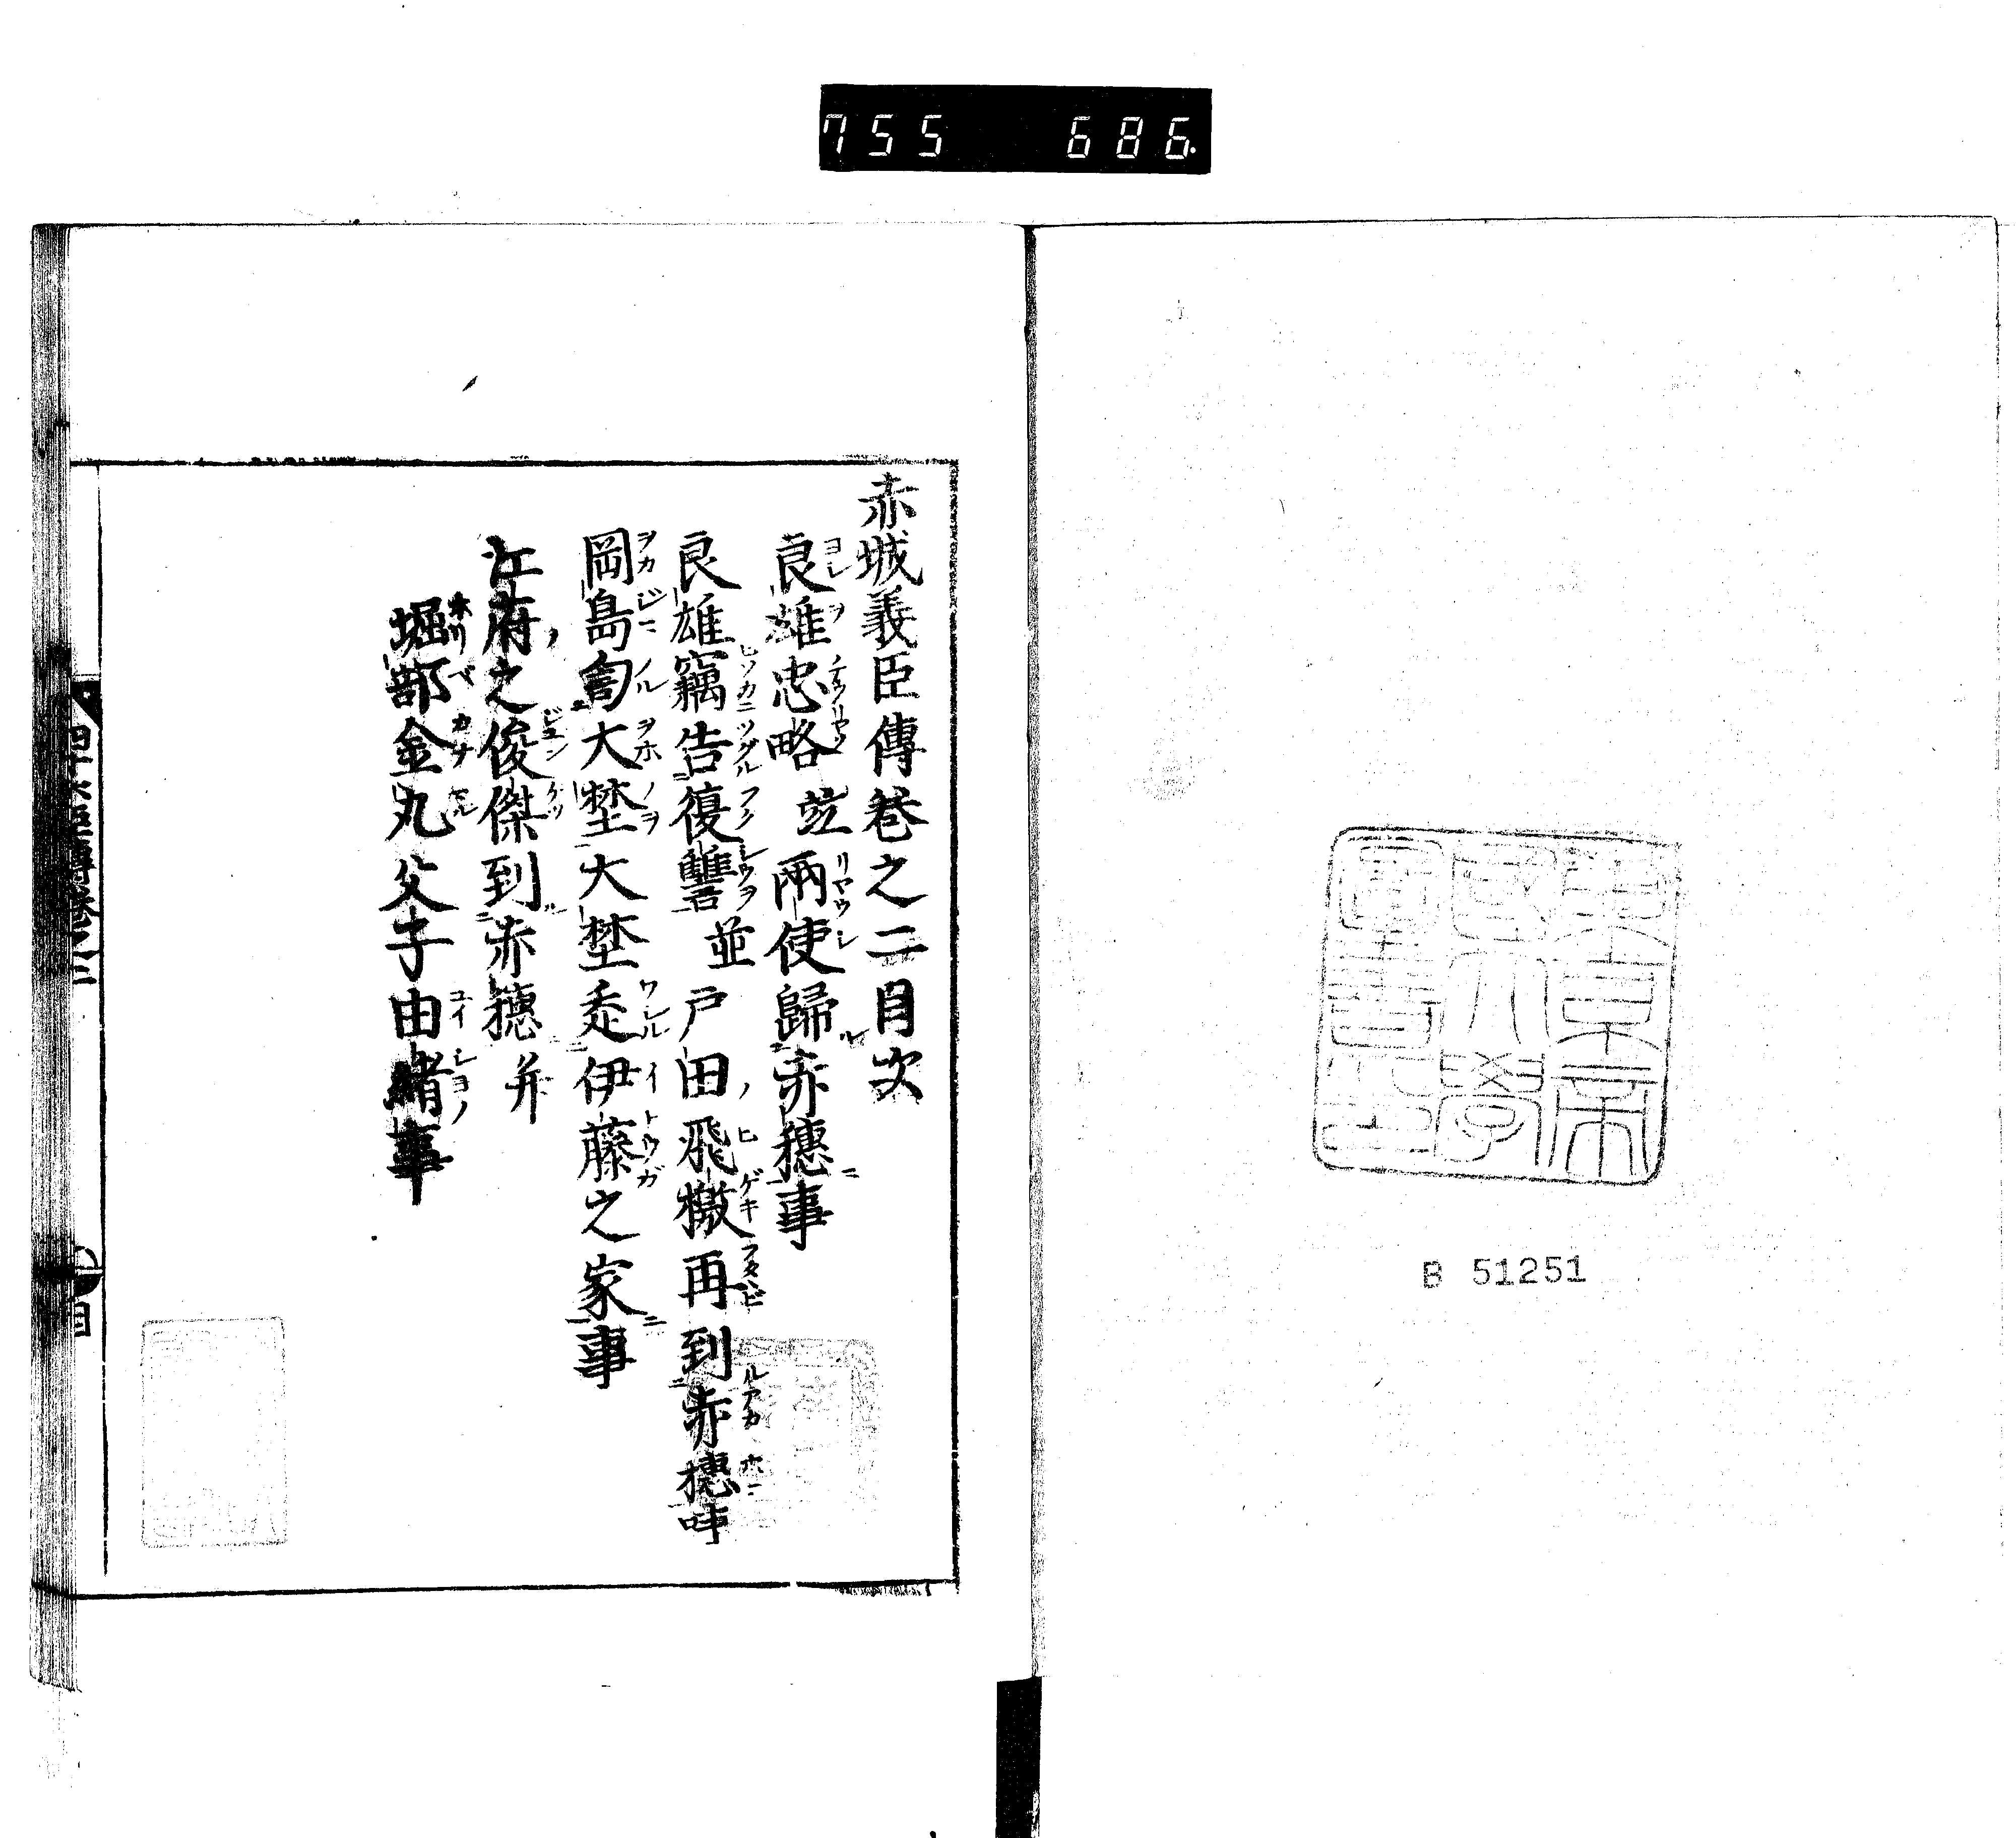 755 686.
東京帝國大學圖書印
B 51251
赤城義臣傳巻之二目次
良雄忠略並兩使歸赤穗事
良雄竊告復讐並戸田飛檄再到赤穗事
岡島訇大埜大埜走伊藤之家事
江府之俊傑到赤穗并
堀部金丸父子由緒事